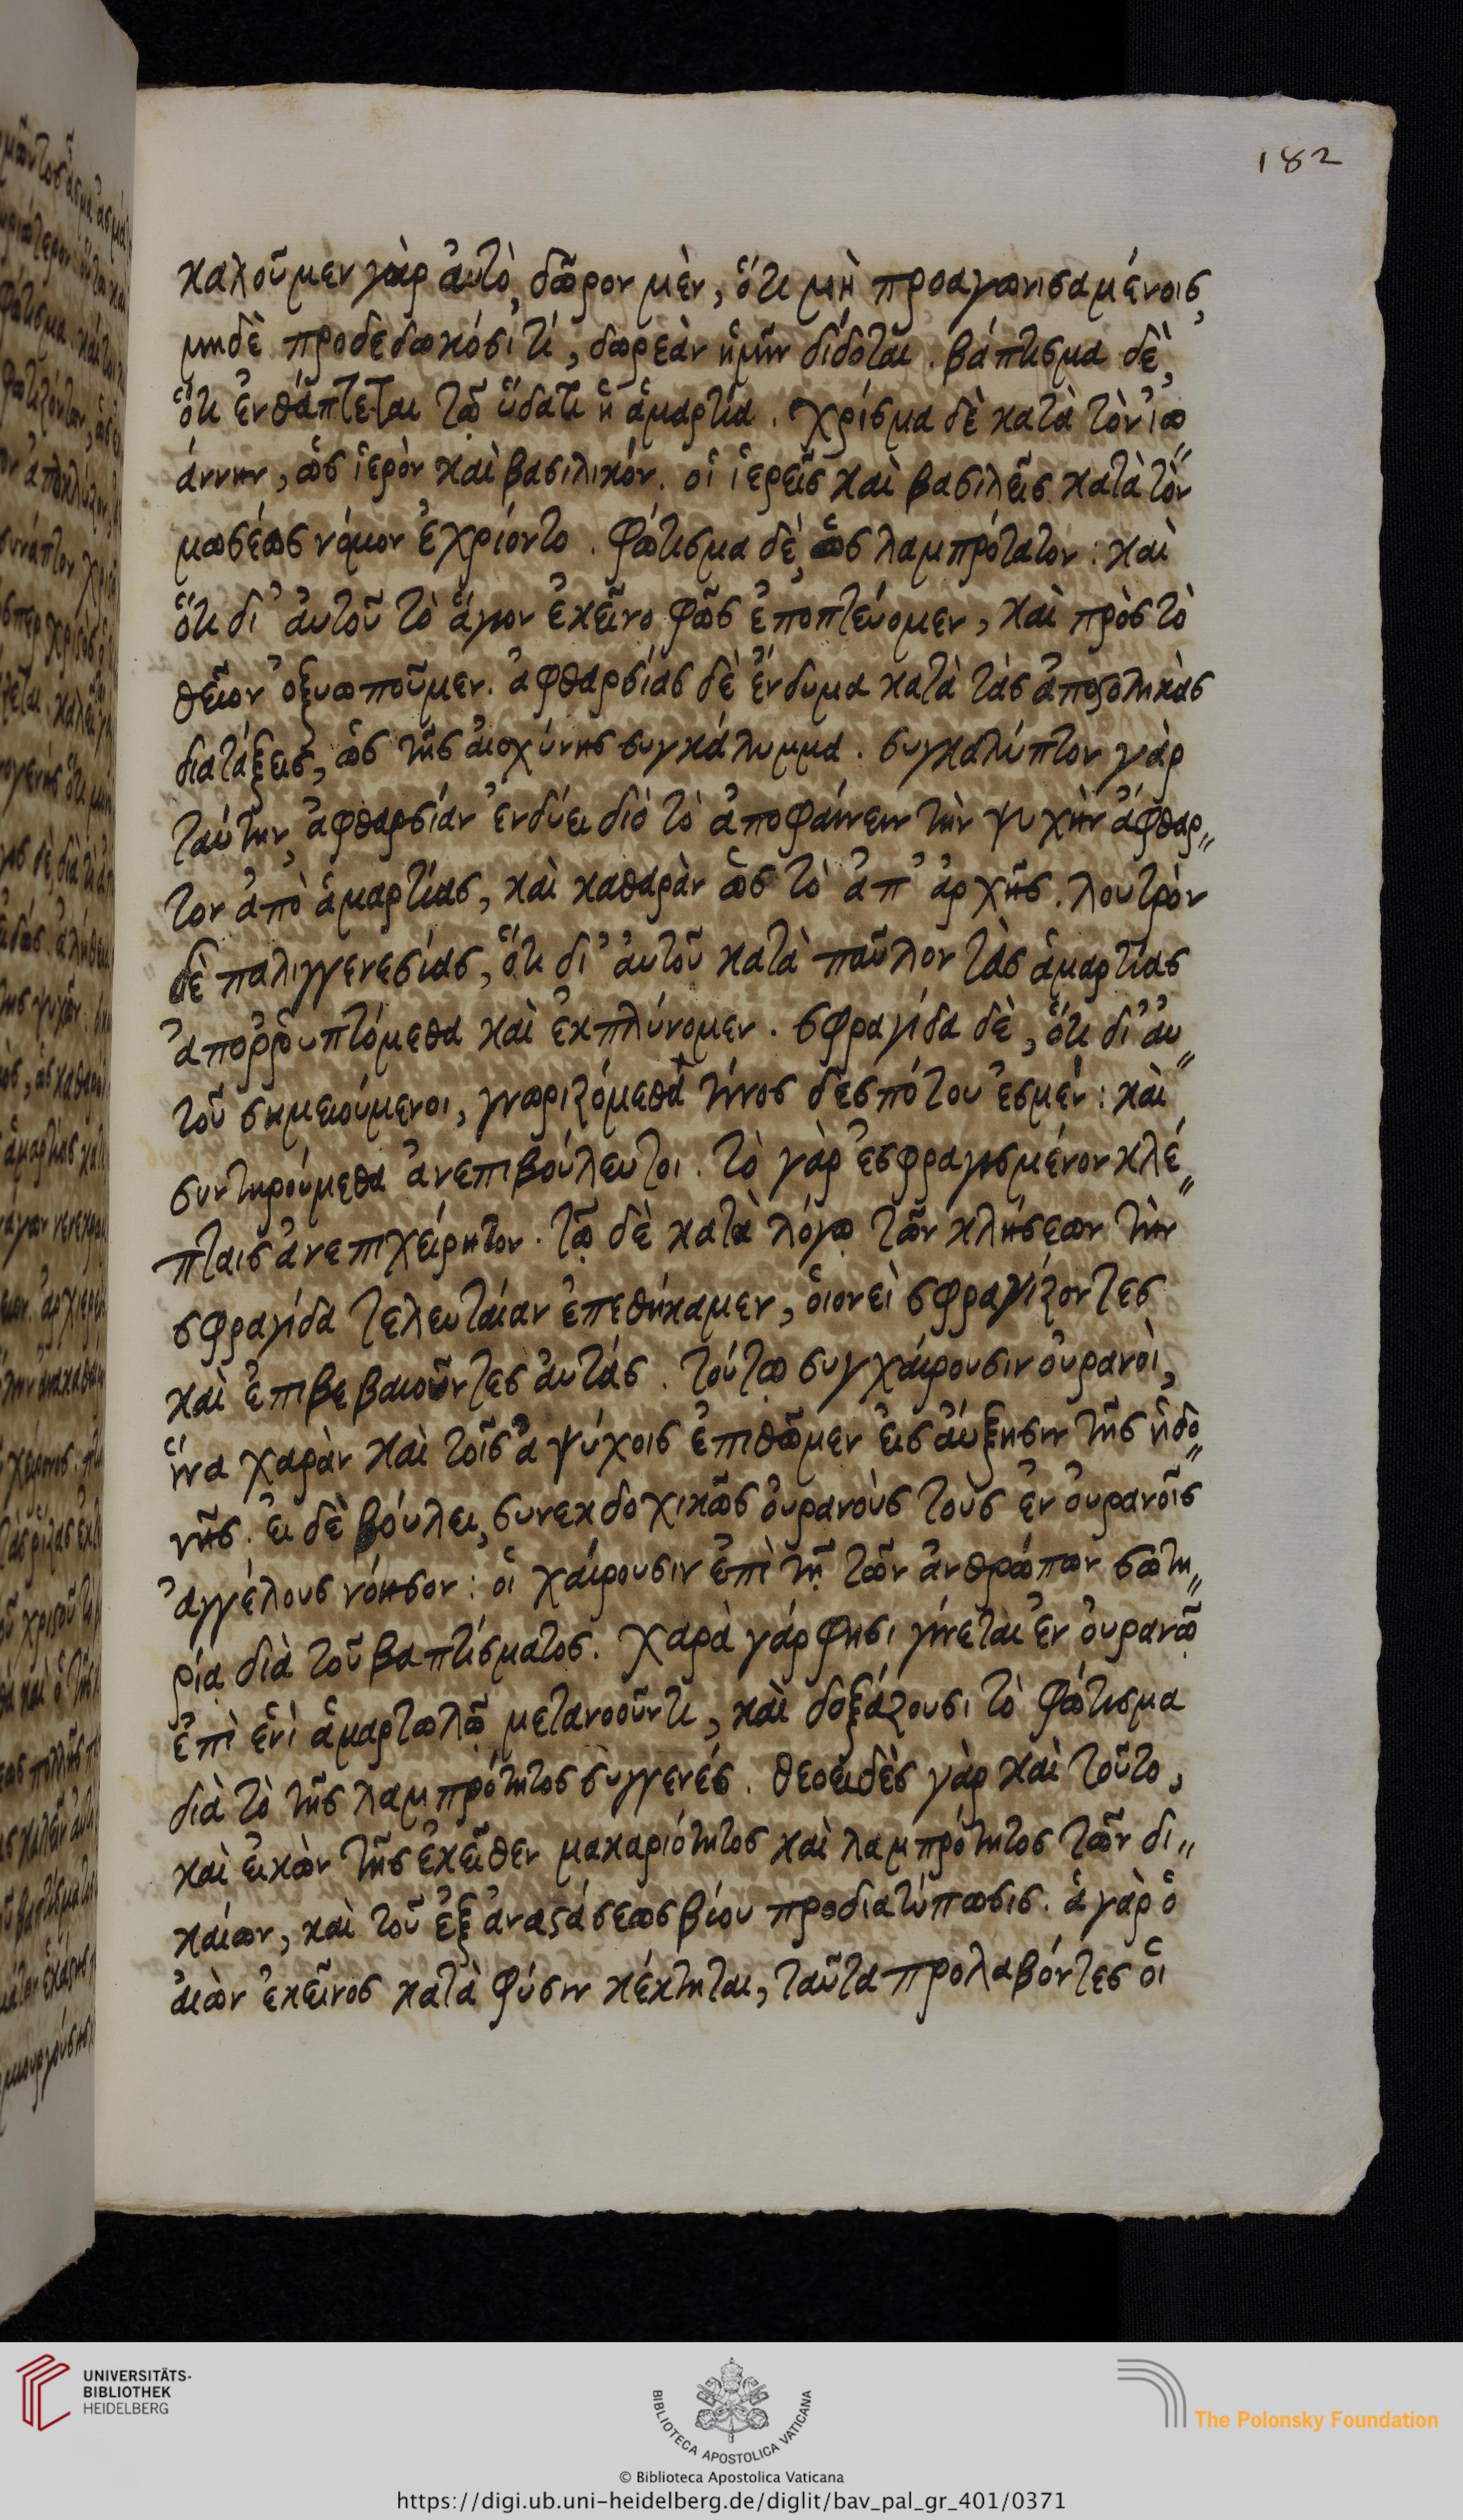 182
καλοῦμεν γὰρ ἀυτὸ, δῶρον μὲν, ὅτι μὴ προαγωνισαμένοις,
μηδὲ προδεδωκόσί τι, δωρεὰν ἡμῖν δίδοται. βάπτισμα δὲ,
ὅτι ἐνθάπτεται τῷ ὕδατι ἡ ἁμαρτία. χρίσμα δὲ κατὰ τὸν ἰω„
άννην, ὡς ἱερὸν καὶ βασιλικόν. οἱ ἱερεῖς καὶ βασιλεῖς κατὰ τὸν
μωσέως νόμον ἐχρίοντο. φώτισμα δὲ, ὡς λαμπρότατον: καὶ
ὅτι δι᾽ ἀυτοῦ τὸ ἅγιον ἐκεῖνο φῶς ἐποπτεύομεν, καὶ πρὸς τὸ
θεῖον ὀξυωποῦμεν. ἀφθαρσίας δὲ ἔνδυμα κατὰ τὰς ἀποστολικὰς
διατάξεις, ὡς τῆς αἰσχύνης συγκάλυμμα. συγκαλύπτον γὰρ
ταύτην, ἀφθαρσίαν ἐνδύει διὸ τὸ ἀποφαίνειν τὴν ψυχὴν ἄφθαρ„
τον ἀπὸ ἁμαρτίας, καὶ καθαρὰν ὡς τὸ ἀπ᾽ ἀρχῆς. λουτρὸν
δὲ παλιγγενεσίας, ὅτι δι᾽ ἀυτοῦ κατὰ παῦλον τὰς ἁμαρτίας
ἀποῤῥυπτόμεθα καὶ ἐκπλύνομεν. σφραγίδα δὲ, ὅτι δι᾽ ἀυ„
τοῦ σημειούμενοι, γνωριζόμεθα τίνος δεσπότου ἐσμέν: καὶ
συντηρούμεθα ἀνεπιβούλευτοι. τὸ γὰρ ἐσφραγισμένον κλέ„
πταις ἀνεπιχείρητον. τῷ δὲ κατὰ λόγῳ τῶν κλήσεων τὴν
σφραγίδα τελευταίαν ἐπεθήκαμεν, οἱονεὶ σφραγίζοντες
καὶ ἐπιβεβαιοῦντες ἀυτάς. τούτῳ συγχαίρουσιν ὀυρανοὶ,
ἵνα χαρὰν καὶ τοῖς ἀψύχοις ἐπιθῶμεν εἰς ἀύξησιν τῆς ἡδο„
νῆς. ει δὲ βούλει, συνεκδοχικῶς ὀυρανοὺς τοὺς ἐν ὀυρανοῖς
ἀγγέλους νόησον: οἱ χαίρουσιν ἐπὶ τῇ τῶν ἀνθρώπων σωτη„
ρίᾳ διὰ τοῦ βαπτίσματος. χαρὰ γάρ φησι γίνεται ἐν ὀυρανῷ
ἐπὶ ἑνὶ ἁμαρτωλῷ μετανοοῦντι, καὶ δοξάζουσι τὸ φώτισμα
διὰ τὸ τῆς λαμπρότητος συγγενές. θεοειδὲς γὰρ καὶ τοῦτο,
καὶ εἰκὼν τῆς ἐκεῖθεν μακαριότητος καὶ λαμπρότητος τῶν δι„
καίων, καὶ τοῦ ἐξ ἀναστάσεως βίου προδιατύπωσις. ἃ γὰρ ὁ
ἀιὼν ἐκεῖνος κατὰ φύσιν κέκτηται, ταῦτα προλαβόντες οἱ
UNIVERSITÄTS-
BIBLIOTHEK
HEIDELBERG
BIBLIOTECA APOSTOLICA VATICANA
The Polonsky Foundation
© Biblioteca Apostolica Vaticana
https://digi.ub.uni-heidelberg.de/diglit/bav_pal_gr_401/0371